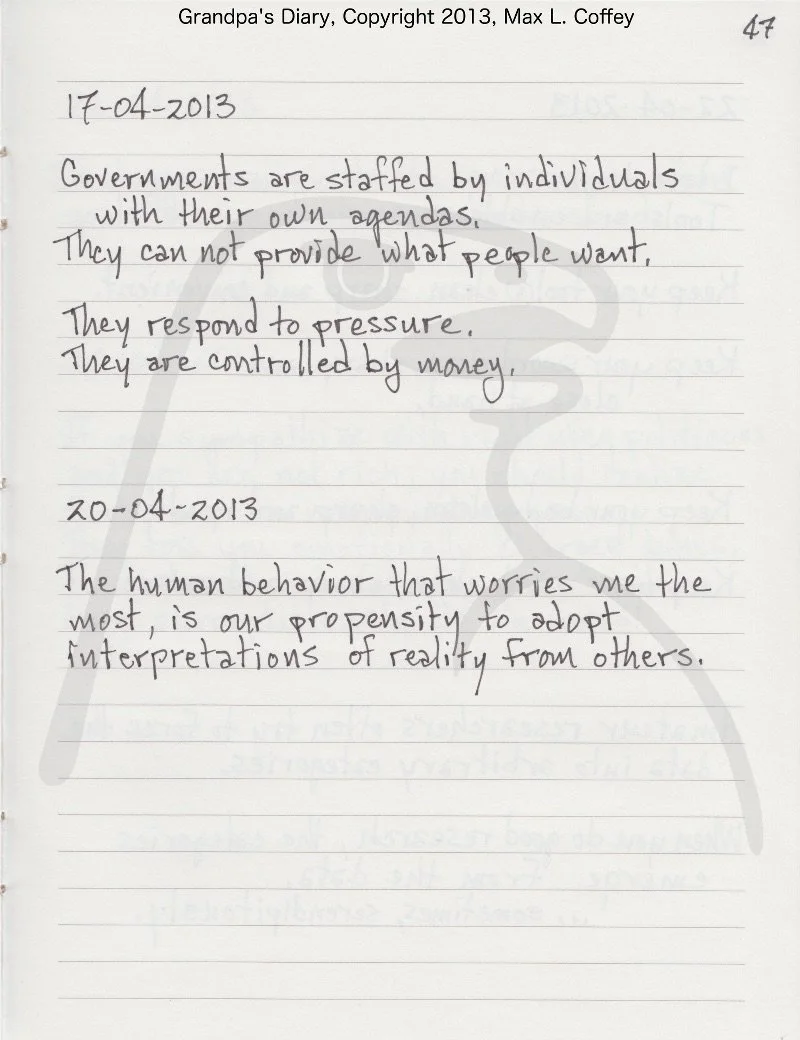 Grandpa's Diary, Copyright 2013, Max L. Coffey
47
17-04-2013
Governments are staffed by individuals
with their own agendas.
They can not provide what people want.
They respond to pressure.
They are controlled by money.
20-04-2013
The human behavior that worries me the
most, is our propensity to adopt
interpretations of reality from others.